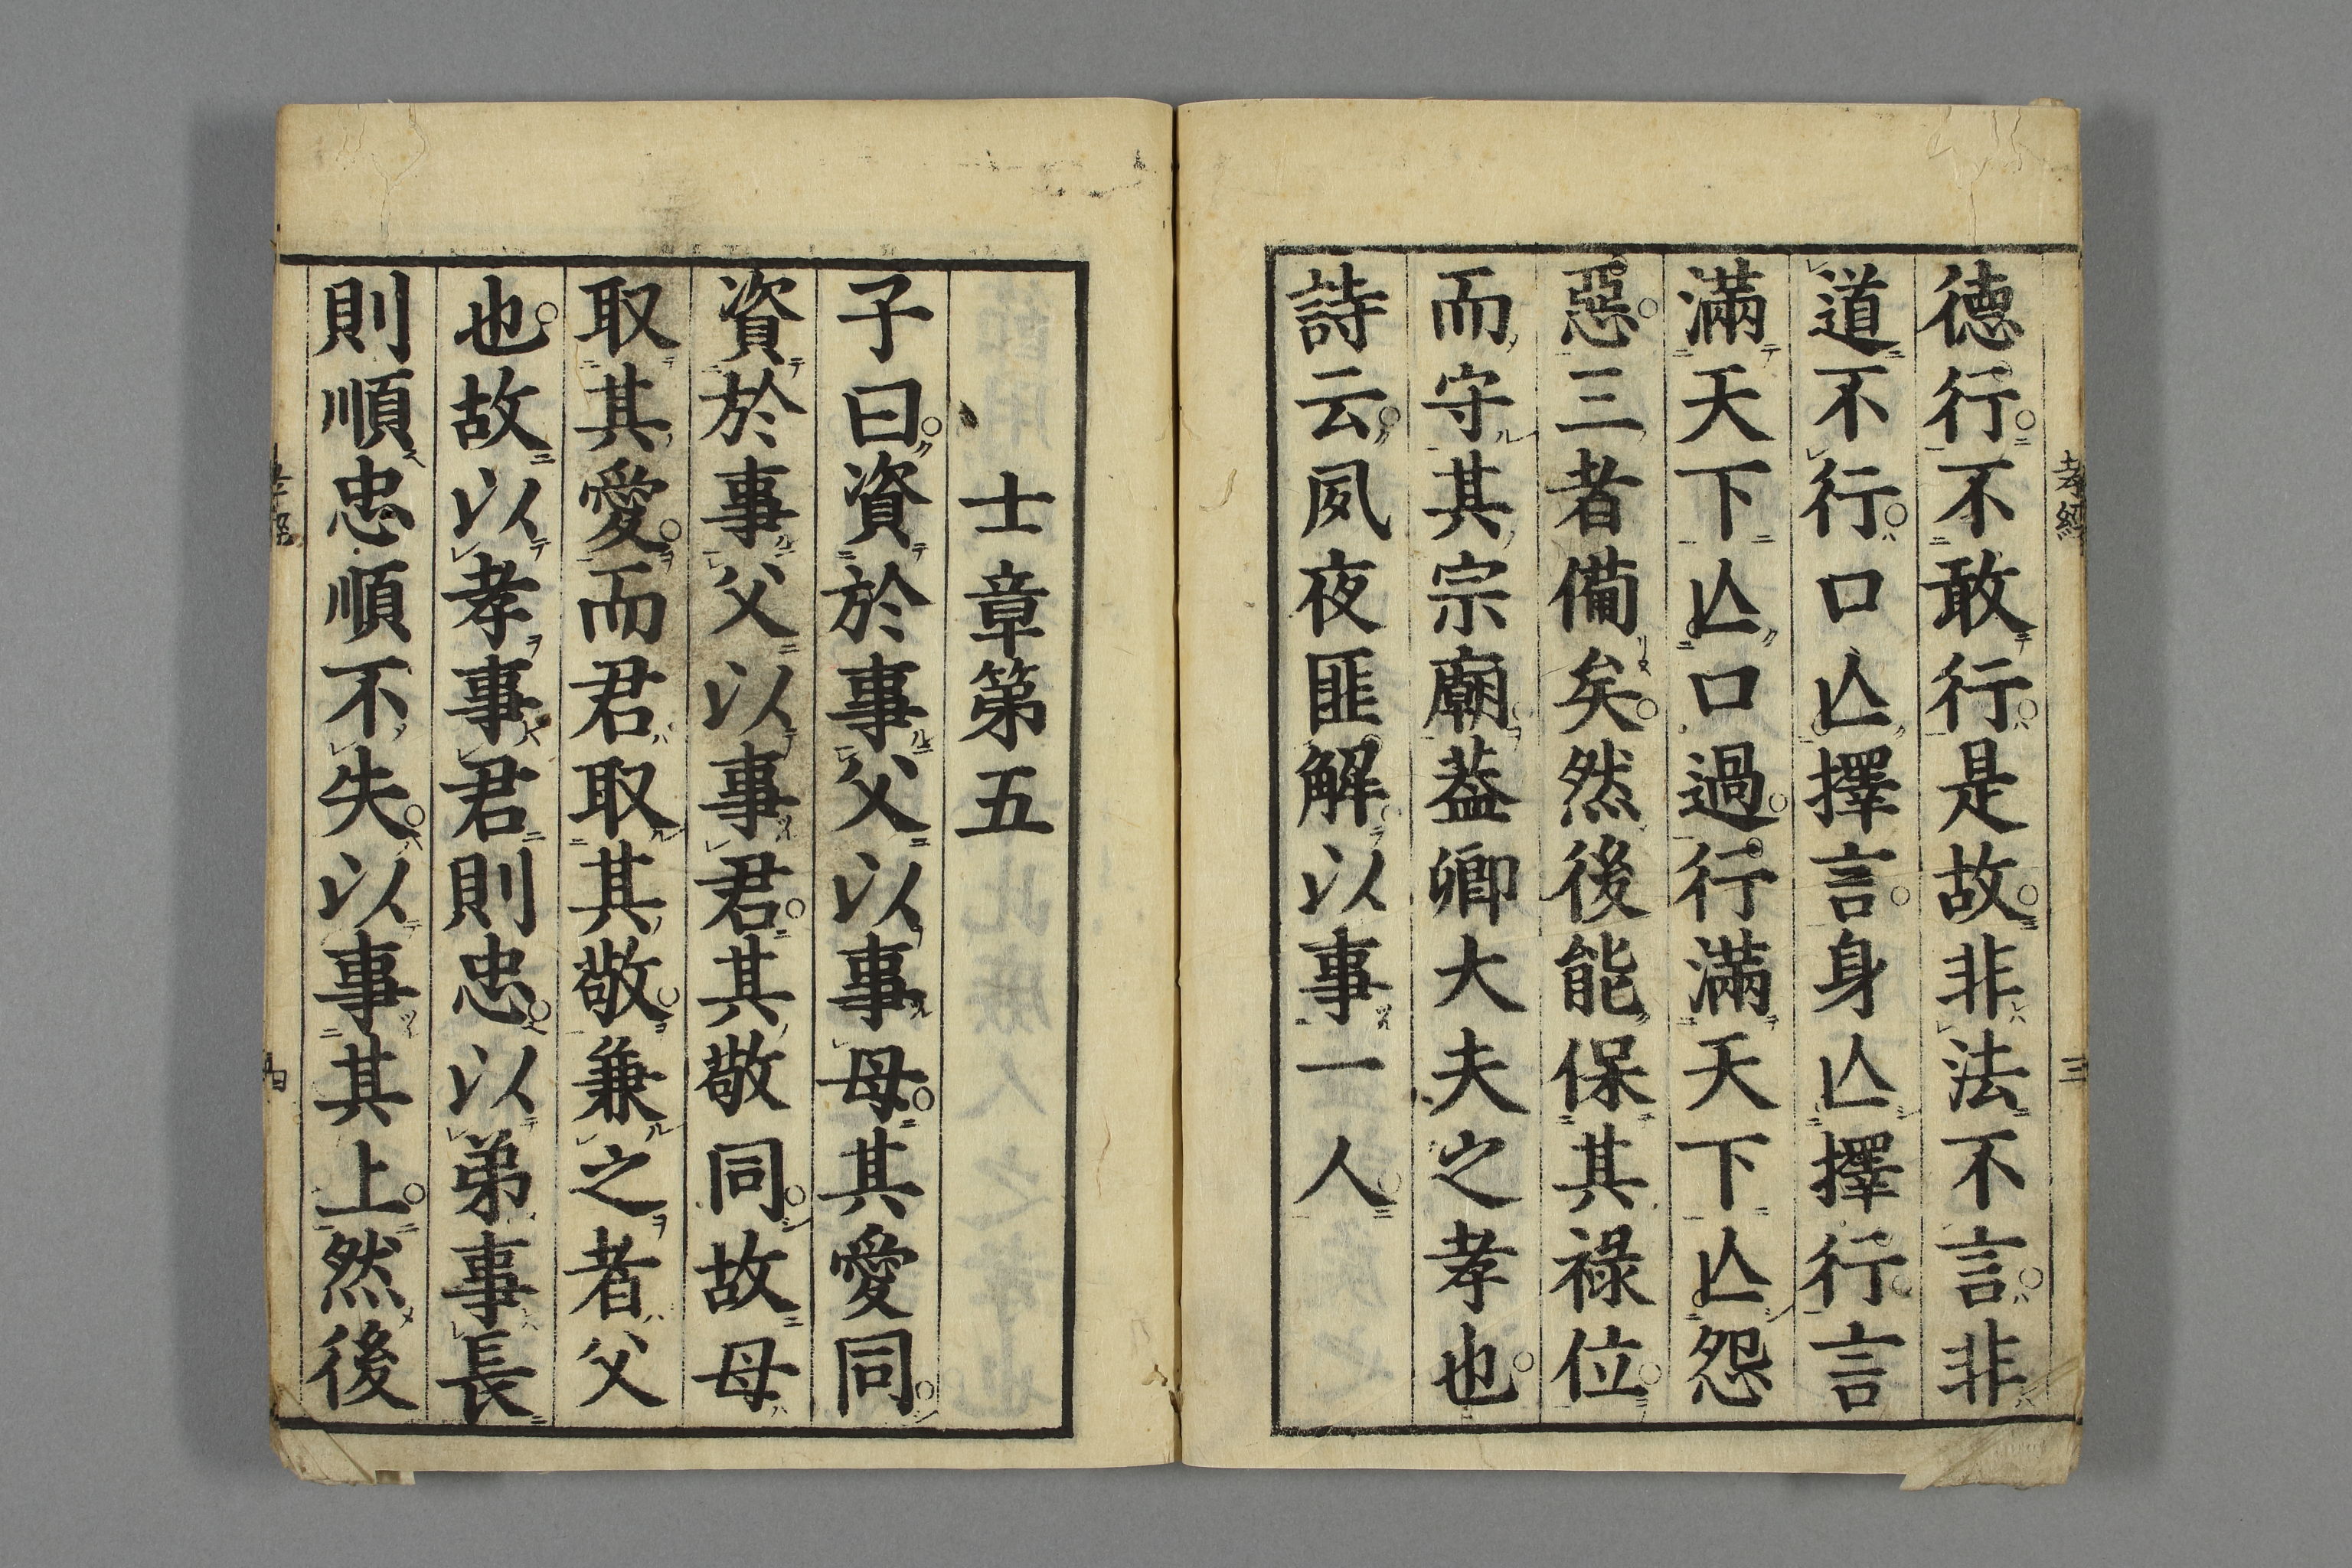 德行不敢行是故非法不言非
道不行口亾擇言身亾擇行言
滿天下亾口過行滿天下亾怨
惡三者備矣然後能保其祿位
而守其宗廟葢卿大夫之孝也
詩云夙夜匪解以事一人
孝經
三
士章第五
子曰資於事父以事母其愛同
資於事父以事君其敬同故母
取其愛而君取其敬兼之者父
也故以孝事君則忠以弟事長
則順忠順不失以事其上然後